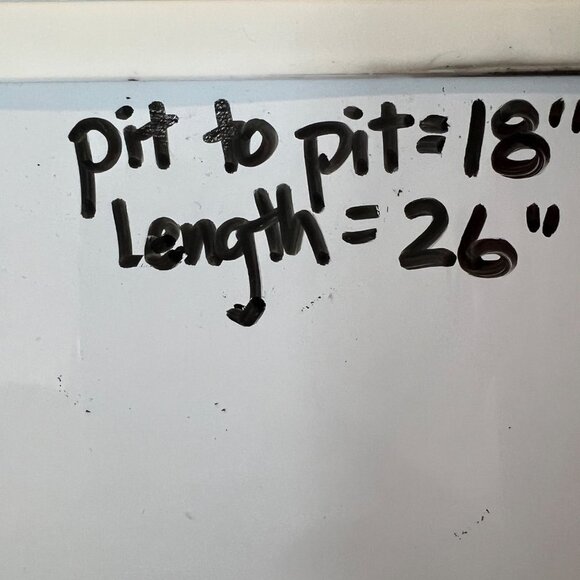 pit to pit = 18"
Length = 26"